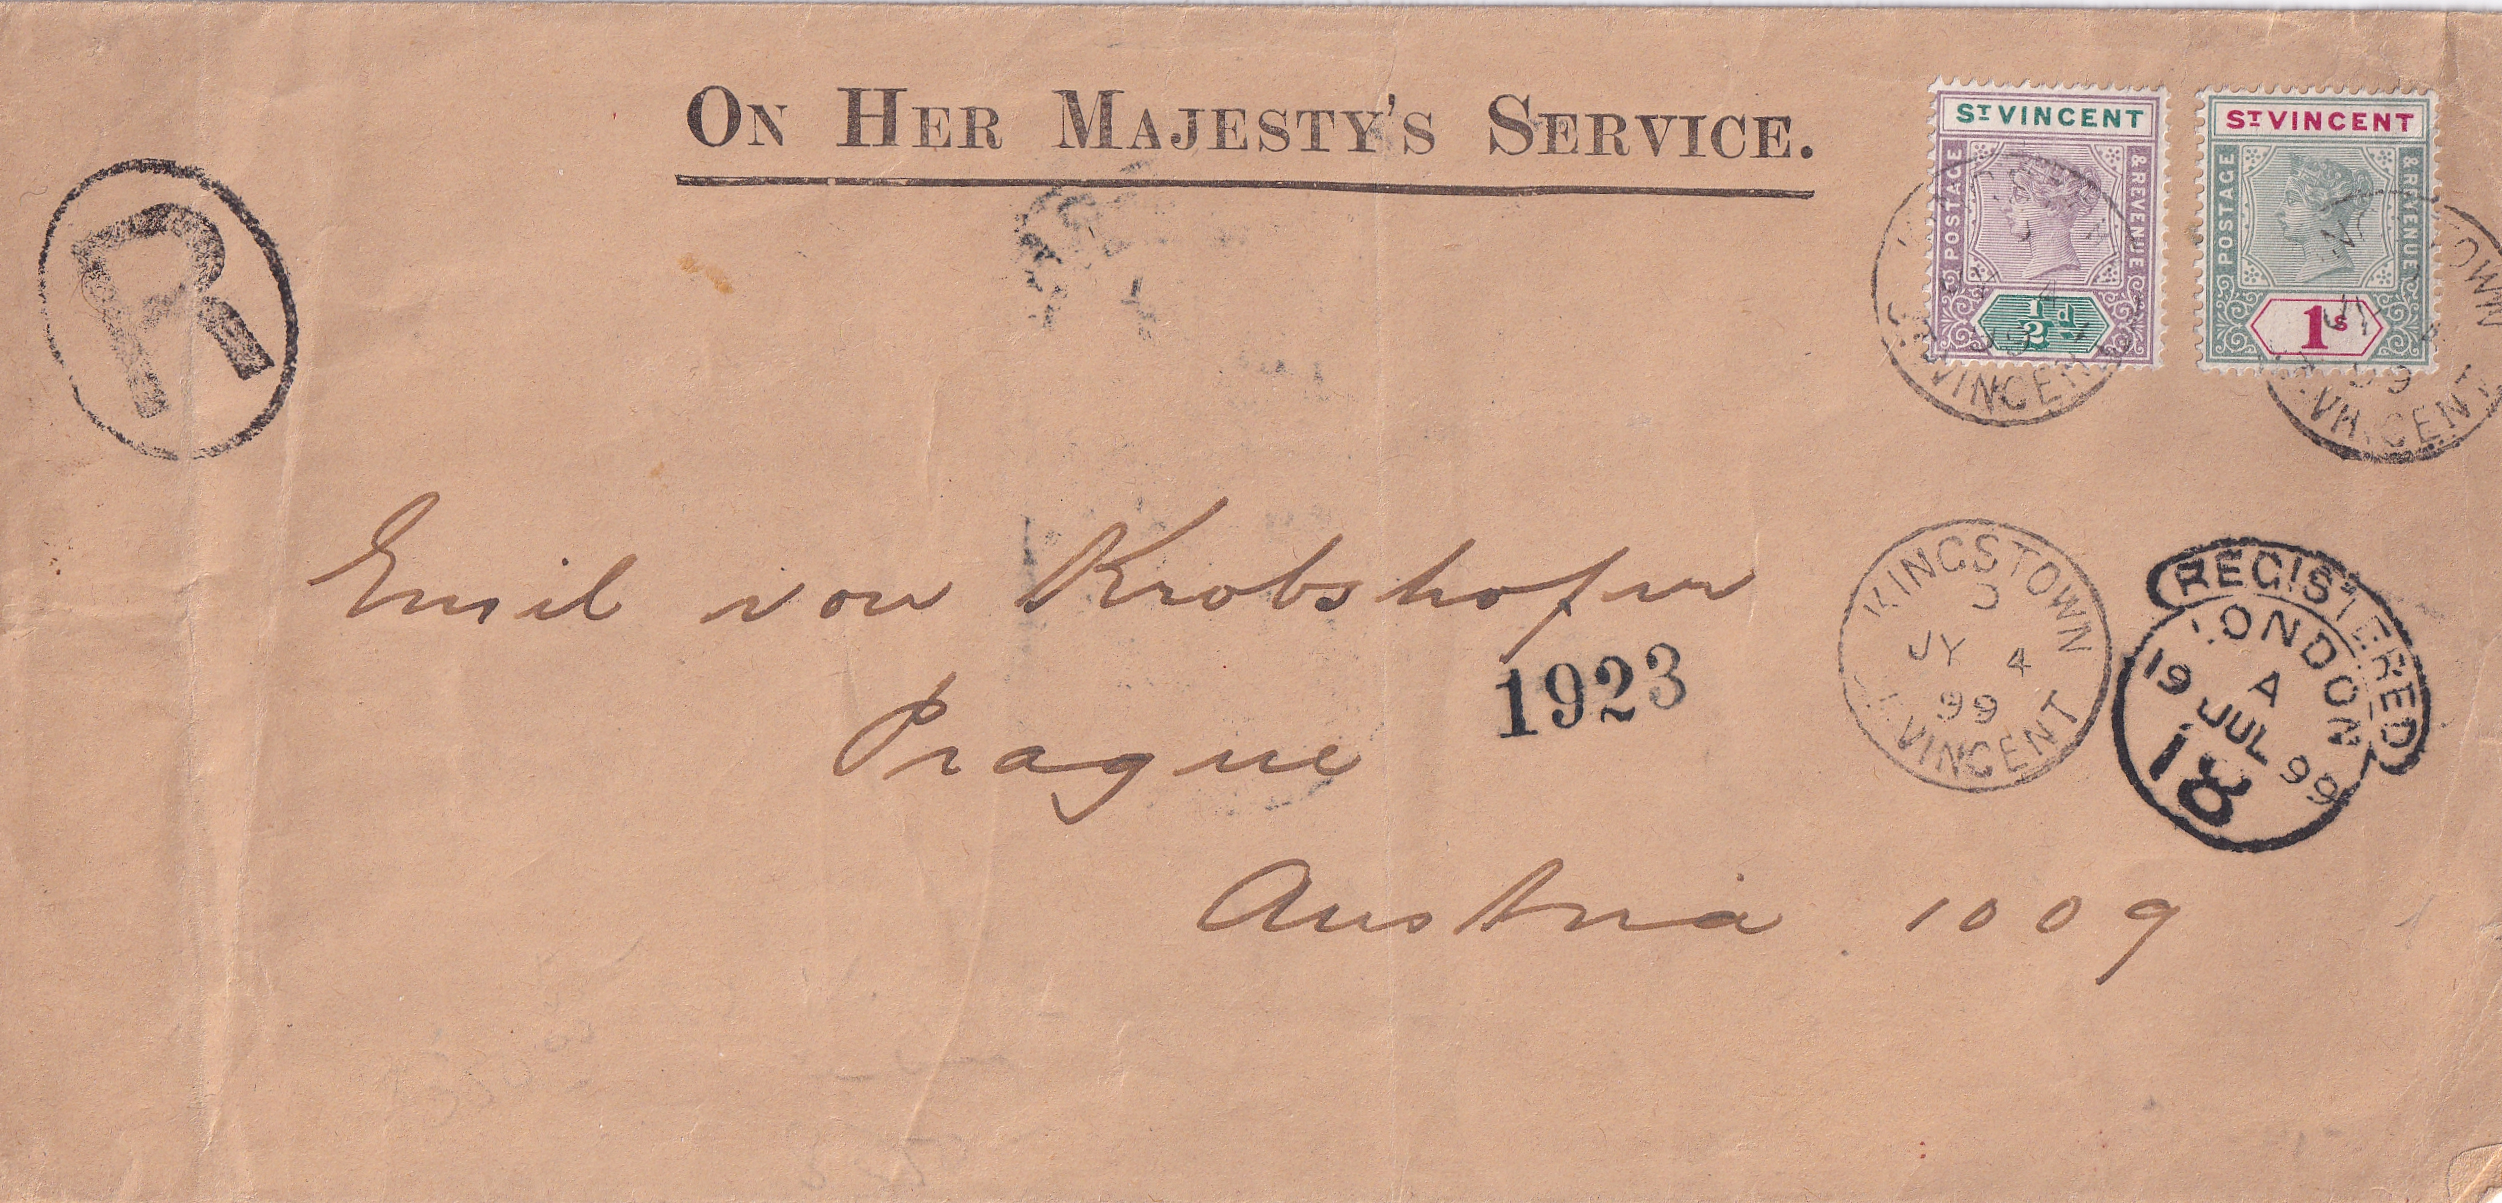 ON HER MAJESTY'S SERVICE.
ST VINCENT
POSTAGE
& REVENUE
1/2 d
ST VINCENT
POSTAGE
& REVENUE
1s
TOWN
JY 4
99
VINCENT
VINCENT
R
Emil von
Prague
1923
Austria 1009
KINGSTOWN
JY 4
99
T. VINCENT
REGISTERED
LONDON
A
19 JUL 99
18